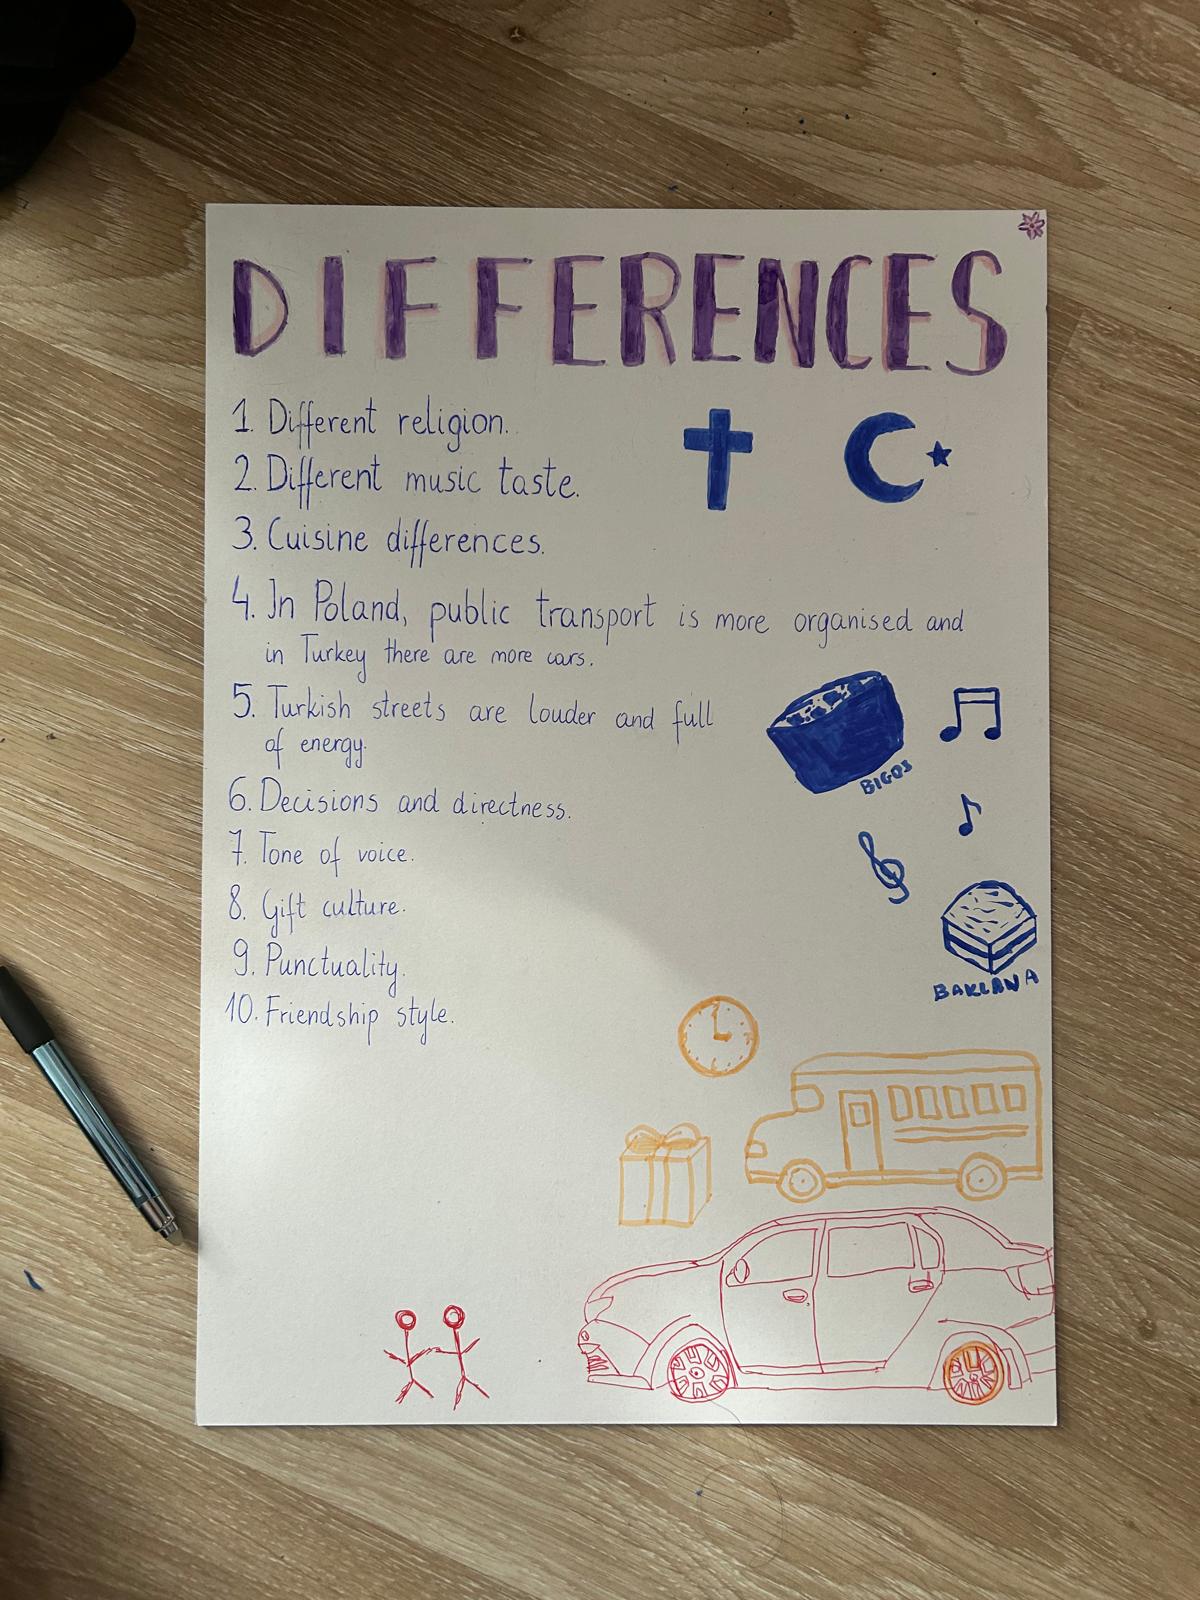 DIFFERENCES
1. Different religion.
2. Different music taste.
3. Cuisine differences.
4. In Poland, public transport is more organised and
in Turkey there are more cars.
5. Turkish streets are louder and full
of energy.
6. Decisions and directness.
7. Tone of voice.
8. Gift culture.
9. Punctuality.
10. Friendship style.
BIGOS
BAKLAVA